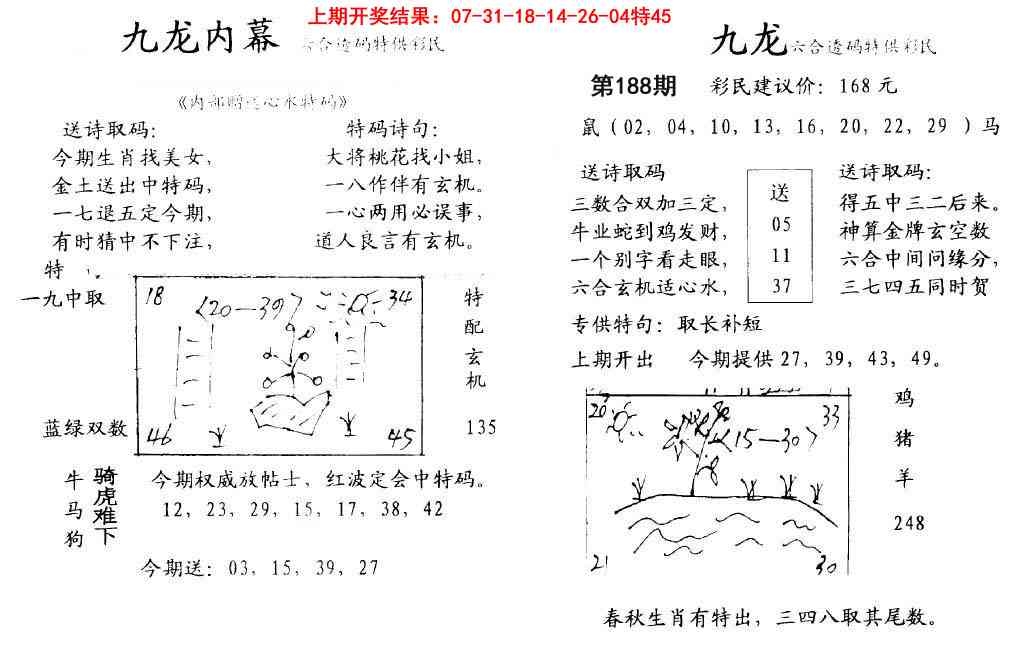 上期开奖结果：07-31-18-14-26-04特45
九龙内幕 六合透码特供彩民
《内部赠送心水特码》
送诗取码：
今期生肖找美女，
金土送出中特码，
一七退五定今期，
有时猜中不下注，
特码诗句：
大将桃花找小姐，
一八作伴有玄机。
一心两用必误事，
道人良言有玄机。
特
一九中取
蓝绿双数
18
〈20—39〉
34
46
45
特
配
玄
机
135
牛
马
狗
骑虎难下
今期权威放帖士，红波定会中特码。
12，23，29，15，17，38，42
今期送：03，15，39，27
九龙 六合透码特供彩民
第188期 彩民建议价：168元
鼠（02，04，10，13，16，20，22，29 ）马
送诗取码
三数合双加三定，
牛业蛇到鸡发财，
一个别字看走眼，
六合玄机适心水，
送
05
11
37
送诗取码：
得五中三二后来。
神算金牌玄空数
六合中间问缘分，
三七四五同时贺
专供特句：取长补短
上期开出 今期提供27，39，43，49。
33
〈15—30〉
21
30
鸡
猪
羊
248
春秋生肖有特出，三四八取其尾数。